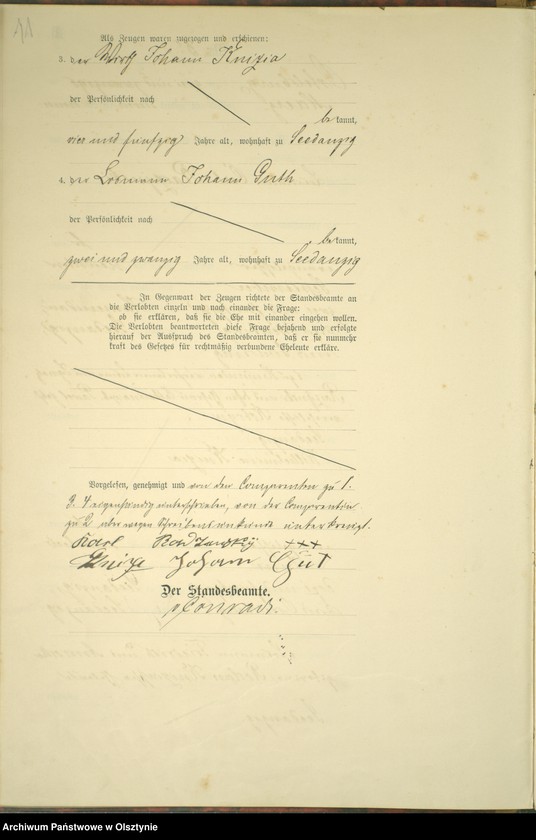 11
Als Zeugen waren zugezogen und erschienen:
3. der Wirth Johann Knizia
der Persönlichkeit nach
be kannt,
vier und fünfzig Jahre alt, wohnhaft zu Seedanzig
4. der Losmann Johann Guth
der Persönlichkeit nach
be kannt,
zwei und zwanzig Jahre alt, wohnhaft zu Seedanzig
In Gegenwart der Zeugen richtete der Standesbeamte an
die Verlobten einzeln und nach einander die Frage:
ob sie erklären, daß sie die Ehe mit einander eingehen wollen.
Die Verlobten beantworteten diese Frage bejahend und erfolgte
hierauf der Ausspruch des Standesbeamten, daß er sie nunmehr
kraft des Gesetzes für rechtmäßig verbundene Eheleute erkläre.
Vorgelesen, genehmigt und von den Comparenten zu 1.
3. 4 eigenhändig unterschrieben, von der Comparentin
zu 2 aber wegen Schreibensunkunde unterkreuzt.
Karl +++
Johann
Der Standesbeamte.
Conradi.
Archiwum Państwowe w Olsztynie